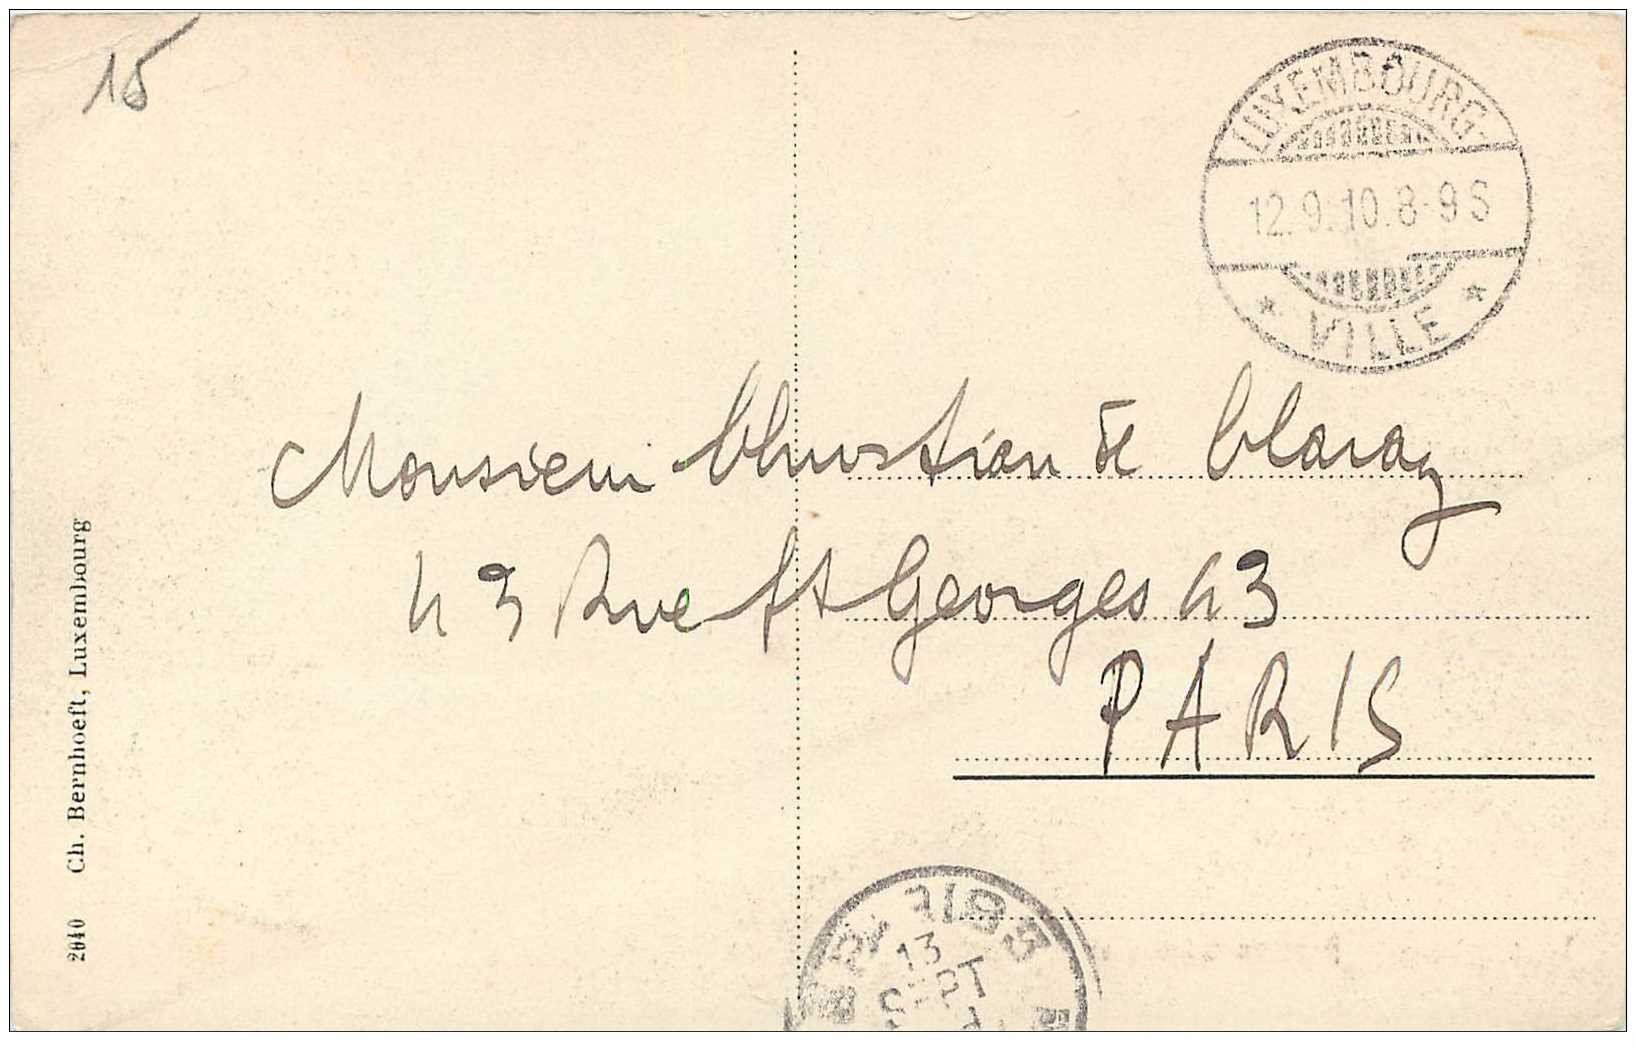 15
LUXEMBOURG-
12.9.10.8-9S
* VILLE *
Monsieur Christian de Claraz
43 Rue St Georges 43
PARIS
2040 Ch. Bernhoeft, Luxembourg
13
SEPT